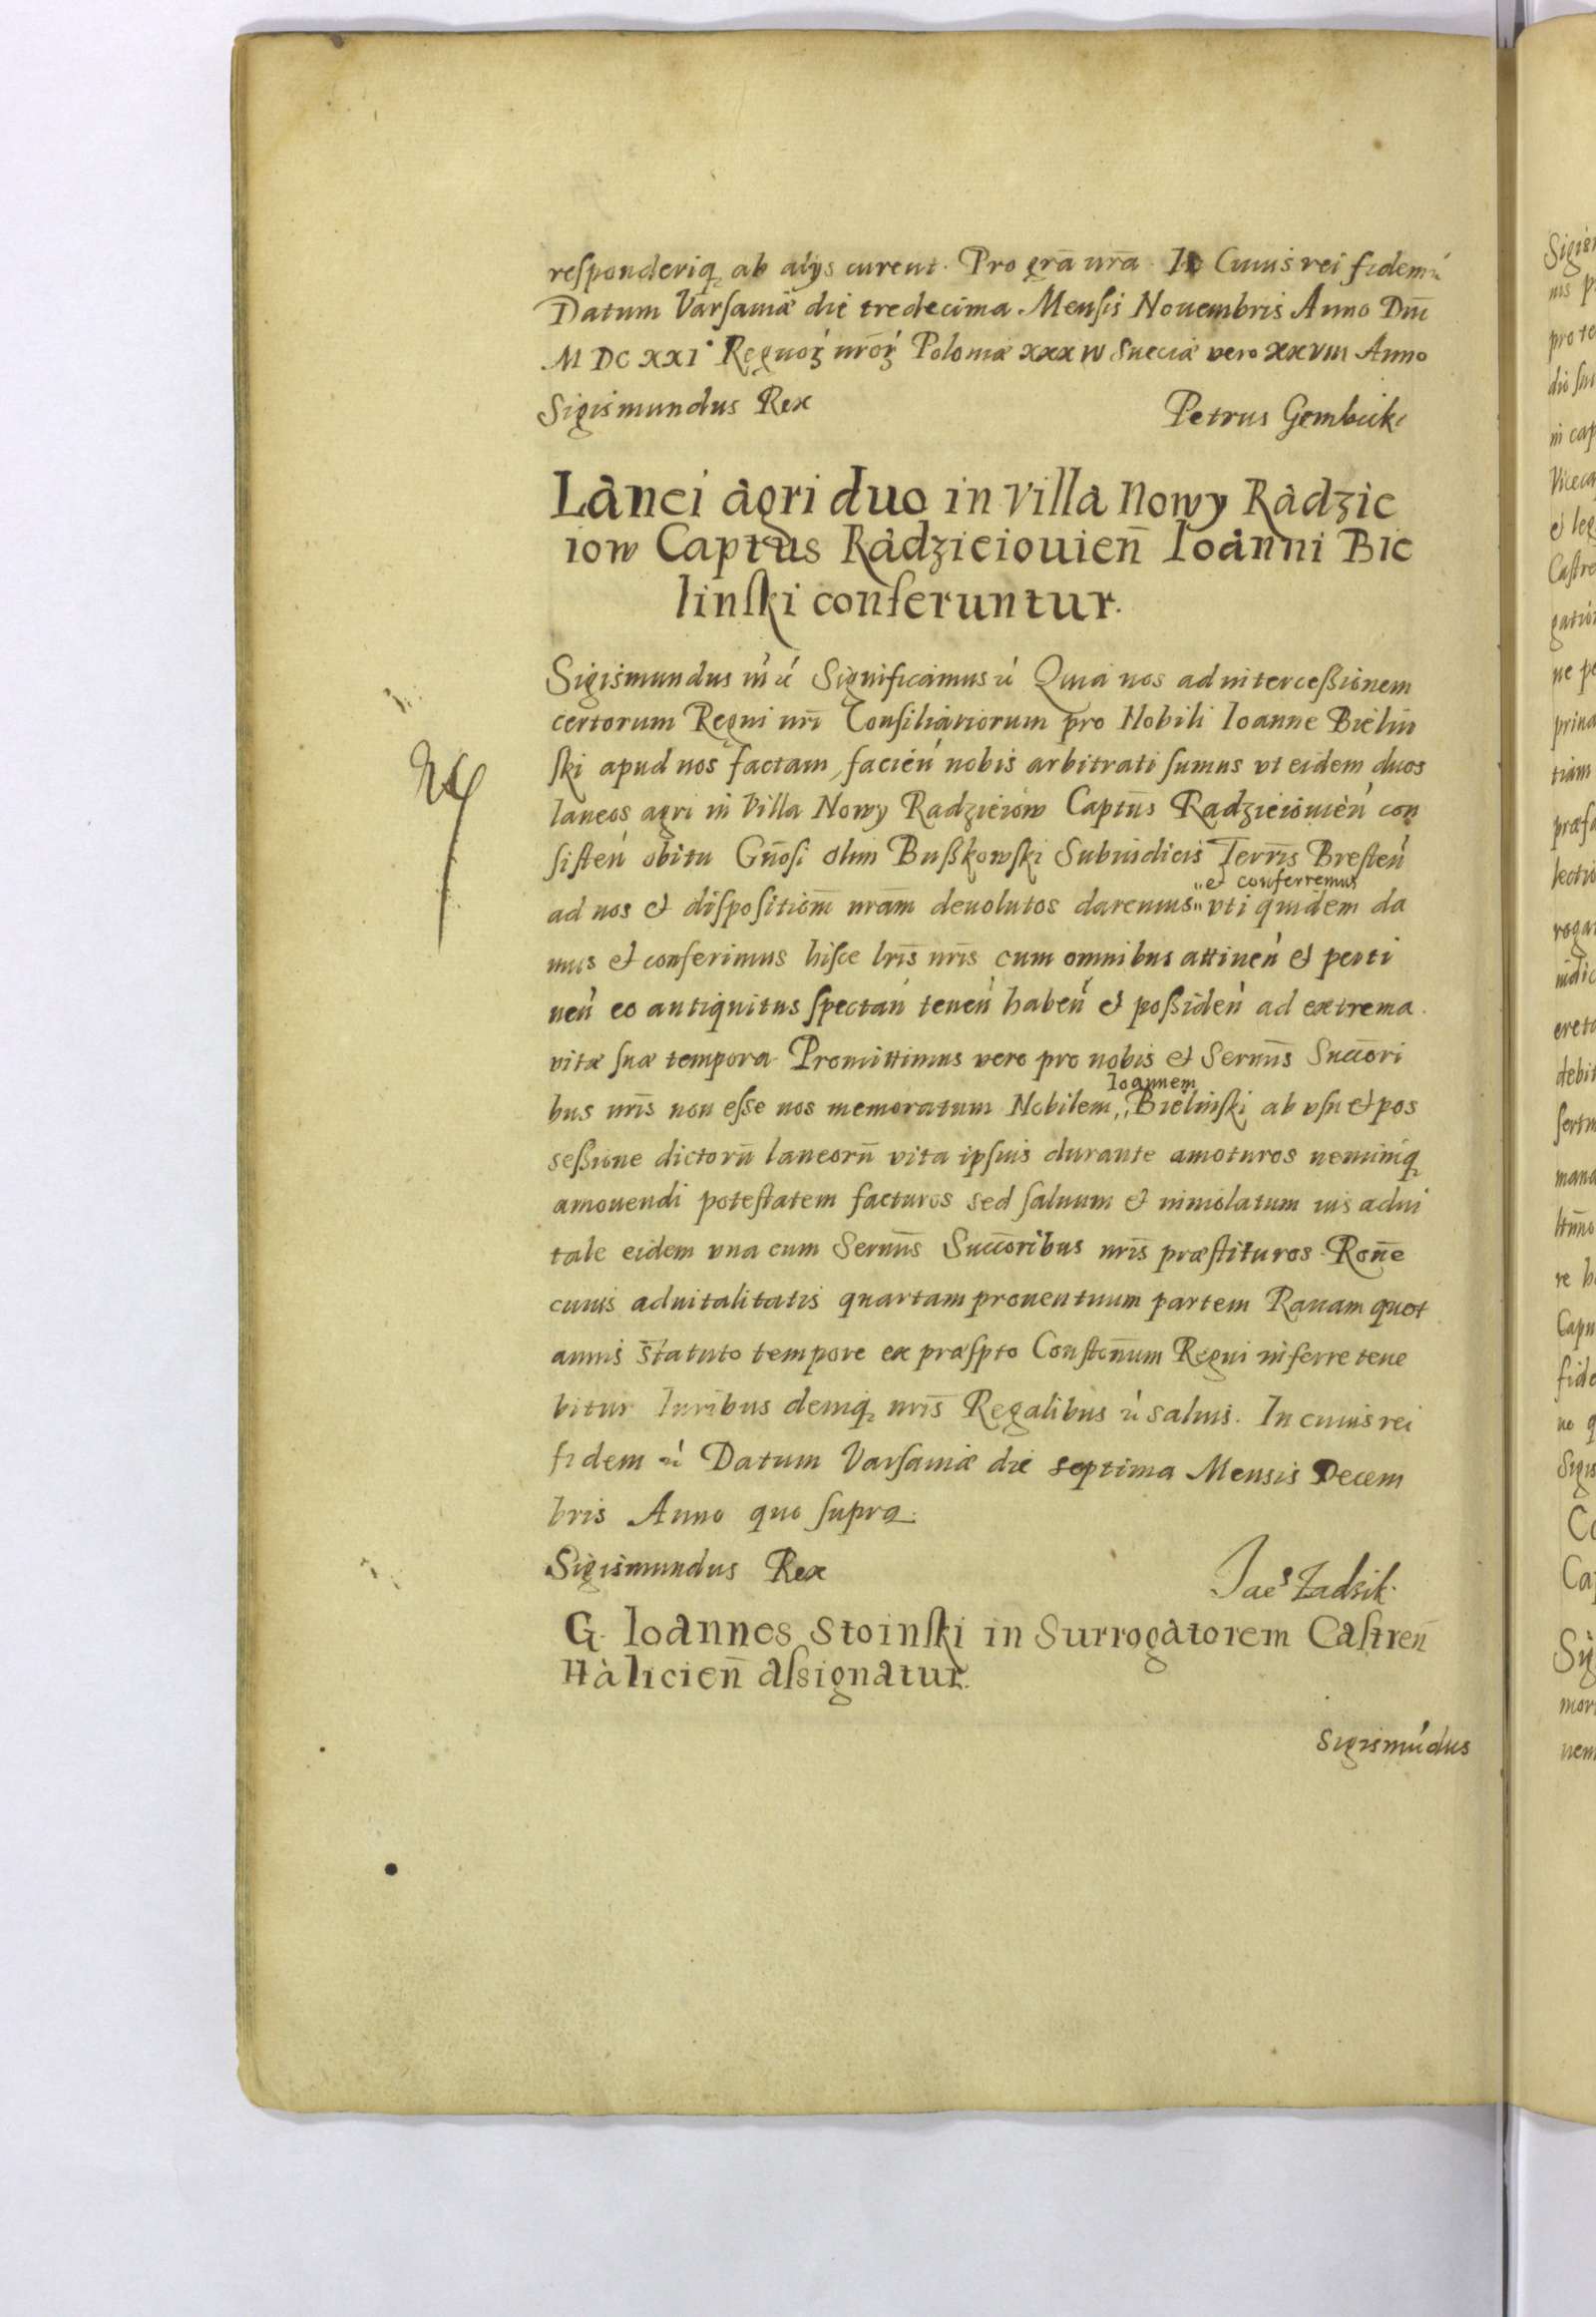 responderiq ab alys curent. Pro grā nrā. In Cuius rei fidem ú
Datum Varsaviæ die tredecima Mensis Nouembris Anno Dni
M DC XXI Regnoꝝ nroꝝ Poloniæ xxxiv Sueciæ vero xxviii Anno
Sigismundus Rex
Petrus Gembicki
Lanei agri duo in Villa Nowy Radzie
iow Captus Radzieiouien̄ Ioanni Bie
linſki conferuntur.
Sigismundus iii ú Significamus ú Quia nos ad intercesßionem
certorum Regni nrī Consiliariorum pro Nobili Ioanne Bielin
ſki apud nos factam, facień nobis arbitrati ſumus vt eidem duos
laneos agri in Villa Nowy Radzieiow Captūs Radzieiouień con
ſiſteń obitu Gn̄osi olim Bußkowſki Subiudicis Terrīs Breſteń
et conferremus
ad nos et diſpoſitiom̄ nram̄ deuolutos daremus vti quidem da
mus et conferimus hiſce lrīs nrīs cum omnibus attineń et perti
neń eo antiquitus ſpectań teneń habeń et poßideń ad extrema
vitæ ſuæ tempora. Promittimus vero pro nobis et Sernn̄s Succ̄ori
Ioannem
bus nrīs non eſse nos memoratum Nobilem Bielinſki ab vſu et pos
seßione dictorū laneorū vita ipſius durante amoturos neminiq
amouendi poteſtatem facturos sed ſaluum et inuiolatum ius adui
tale eidem vna cum Sernn̄s Succ̄oribus nrīs præſtituros. Ron̄e
cuius aduitalitatis quartam prouentuum partem Rauam quot
annis statuto tempore ex præſpto Conſton̄um Regni inferre tene
bitur Iuribus deniq nrīs Regalibus ú saluis. In cuius rei
fidem ú Datum Varſauiæ die septima Mensis Decem
bris Anno quo ſupra.
Sigismundus Rex
Jac⁹ Zadzik
G. Ioannes Stoinſki in Surrogatorem Caſtren̄
Halicien̄ aſsignatur.
Sigismúdus